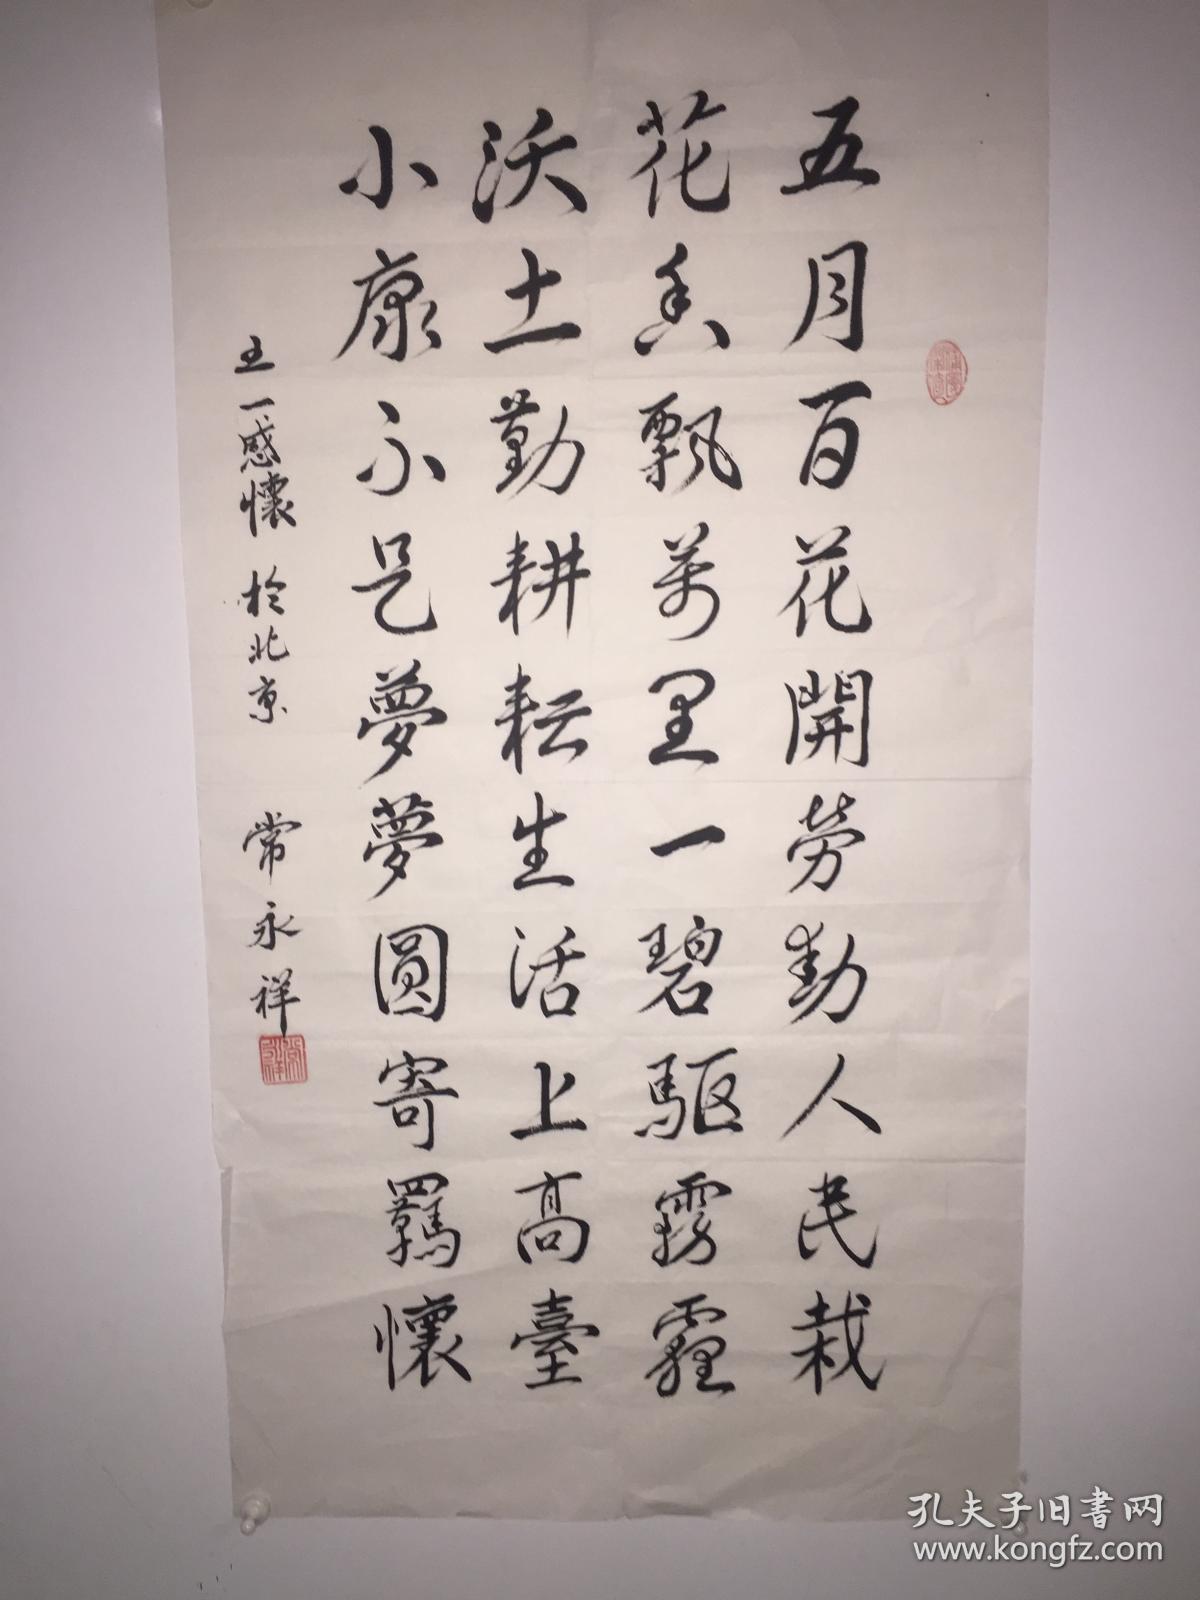 五月百花開勞動人民栽
花香飄萬里一碧驅霧霾
沃土勤耕耘生活上高臺
小康不是夢夢圓寄羈懷
五一感懷 於北京 常永祥
孔夫子旧书网
www.kongfz.com